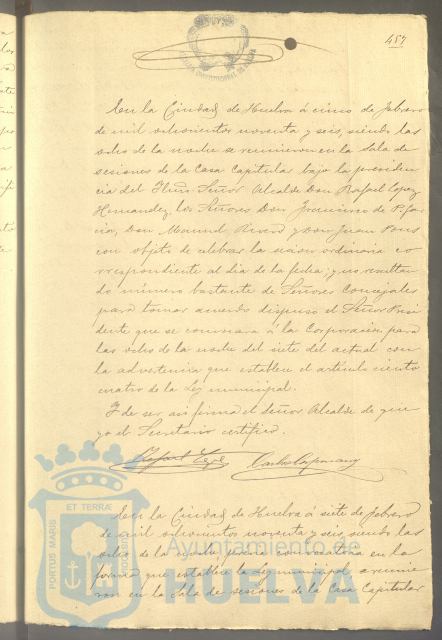 457
En la Ciudad de Huelva á cinco de febrero
de mil ochocientos noventa y seis, siendo las
ocho de la noche se reunieron en la Sala de
sesiones de la Casa Capitular bajo la presiden
cia del Iltmo. Señor Alcalde Don Rafael López
Hernandez, los Señores Don Francisco de P. Gar
cia, Don Manuel Rivero y Don Juan Pons
con objeto de celebrar la sesion ordinaria co
rrespondiente al dia de la fecha; y no resultan
do número bastante de Señores Concejales
para tomar acuerdo dispuso el Señor Presi
dente que se convocara á la Corporacion para
las ocho de la noche del siete del actual con
la advertencia que establece el artículo ciento
cuatro de la Ley municipal.
Y de ser así firma el Señor Alcalde de que
yo el Secretario certifico.
Rafael López
En la Ciudad de Huelva á siete de febrero
de mil ochocientos noventa y seis, siendo las
ocho de la noche, previa convocatoria en la
forma que establece la Ley municipal se reunie
ron en la Sala de sesiones de la Casa Capitular
PORTUS MARIS ET TERRÆ CUSTODIA
Ayuntamiento de
HUELVA